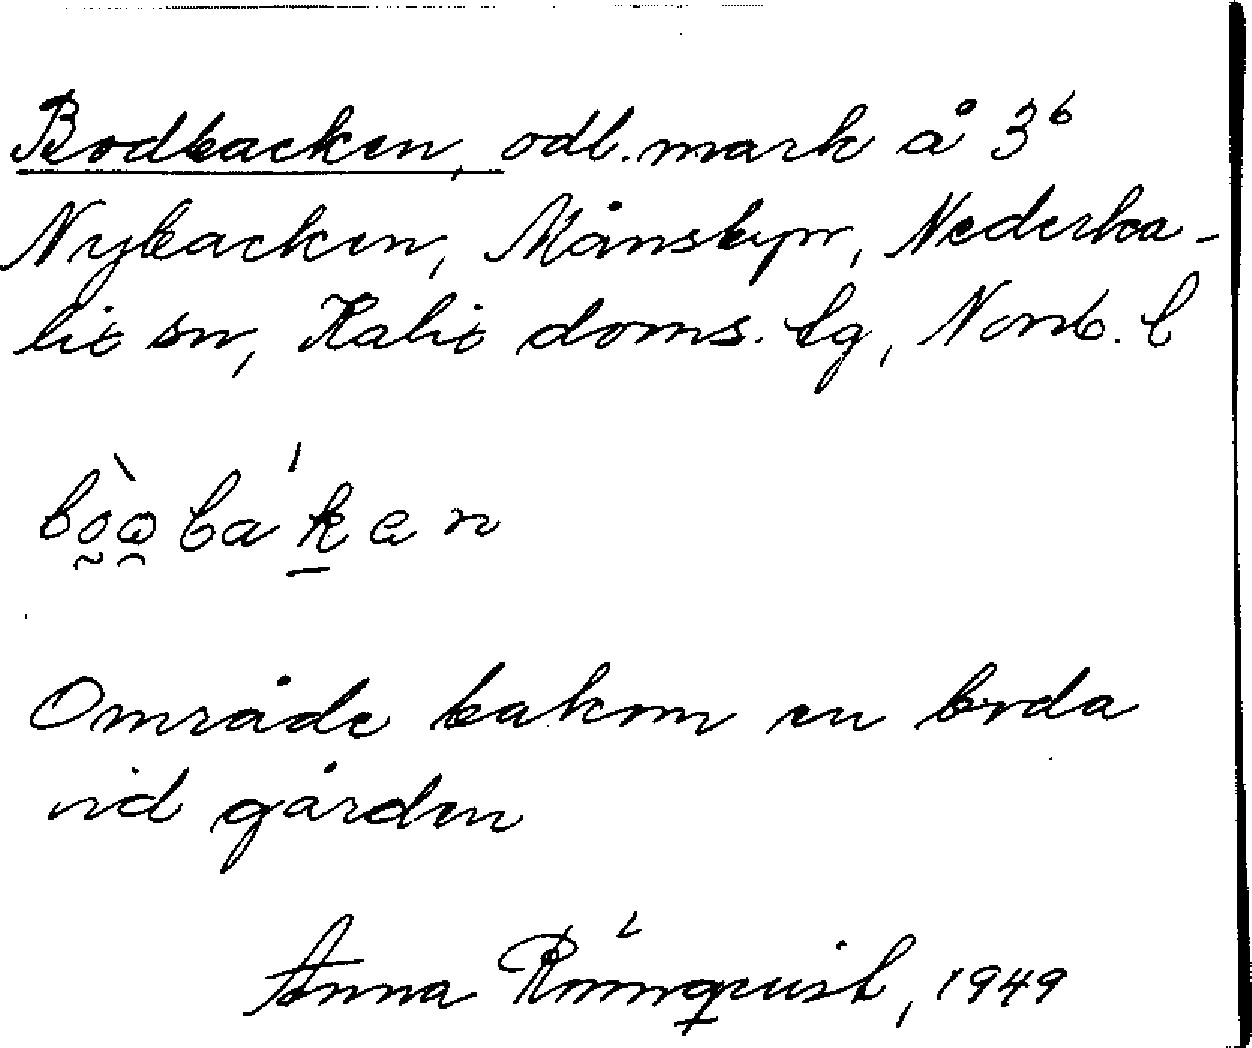 Bodbacken, odl. mark å 3⁶
Nybacken, Månsbyn, Nederka-
lix sn, Kalix doms. tg, Norrb. l
Område bakom en boda
vid gården
Anna Rönnquist, 1949